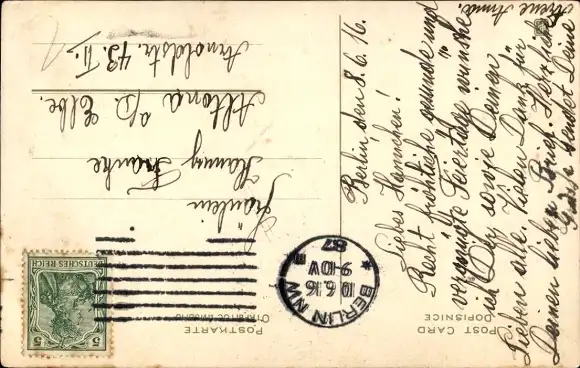 Berlin den 8.6.16.
Liebes Hannchen!
Recht fröhliche gesunde und
vergnügte Feiertage wünsche
ich Dir sowie Deinen
Lieben alle. Vielen Dank für
Deinen lieben Brief. Herzliche
Grüße sendet Deine
Anna.
Fräulein
Hanny Franke
Altona a/D. Elbe.
Arnoldstr. 43. II.
POSTKARTE
POST CARD
DOPISNICE
BERLIN NW
10.6.16
9-10V
* 87
DEUTSCHES REICH
5 5